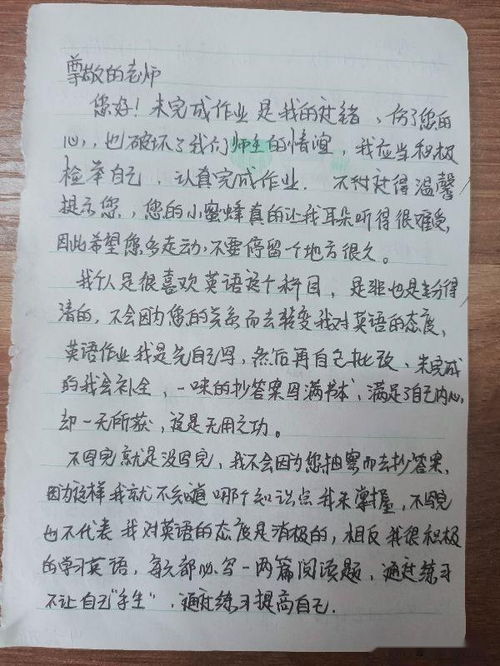 尊敬的老师
您好！未完成作业是我的过错，伤了您的
心，也破坏了我们师生的情谊，我应当积极
检举自己，认真完成作业. 不过得温馨
提示您，您的小蜜蜂真的让我耳朵听得很难受,
因此希望您多走动,不要停留个地方很久。
我个人是很喜欢英语这个科目，是非也是分得
清的，不会因为您的关系而去转变我对英语的态度,
英语作业我是先自己写，然后再自己批改，未完成
的我会补全，一味的抄答案写满书本，满足了自己内心,
却一无所获，这是无用之功。
不写完就是没写完，我不会因为您抽察而去抄答案,
因为这样我就不知道哪个知识点我未掌握，不写完
也不代表我对英语的态度是消极的，相反我很积极
的学习英语，每天都必写一两篇阅读题，通过练习
不让自己"手生"，通过练习提高自己.